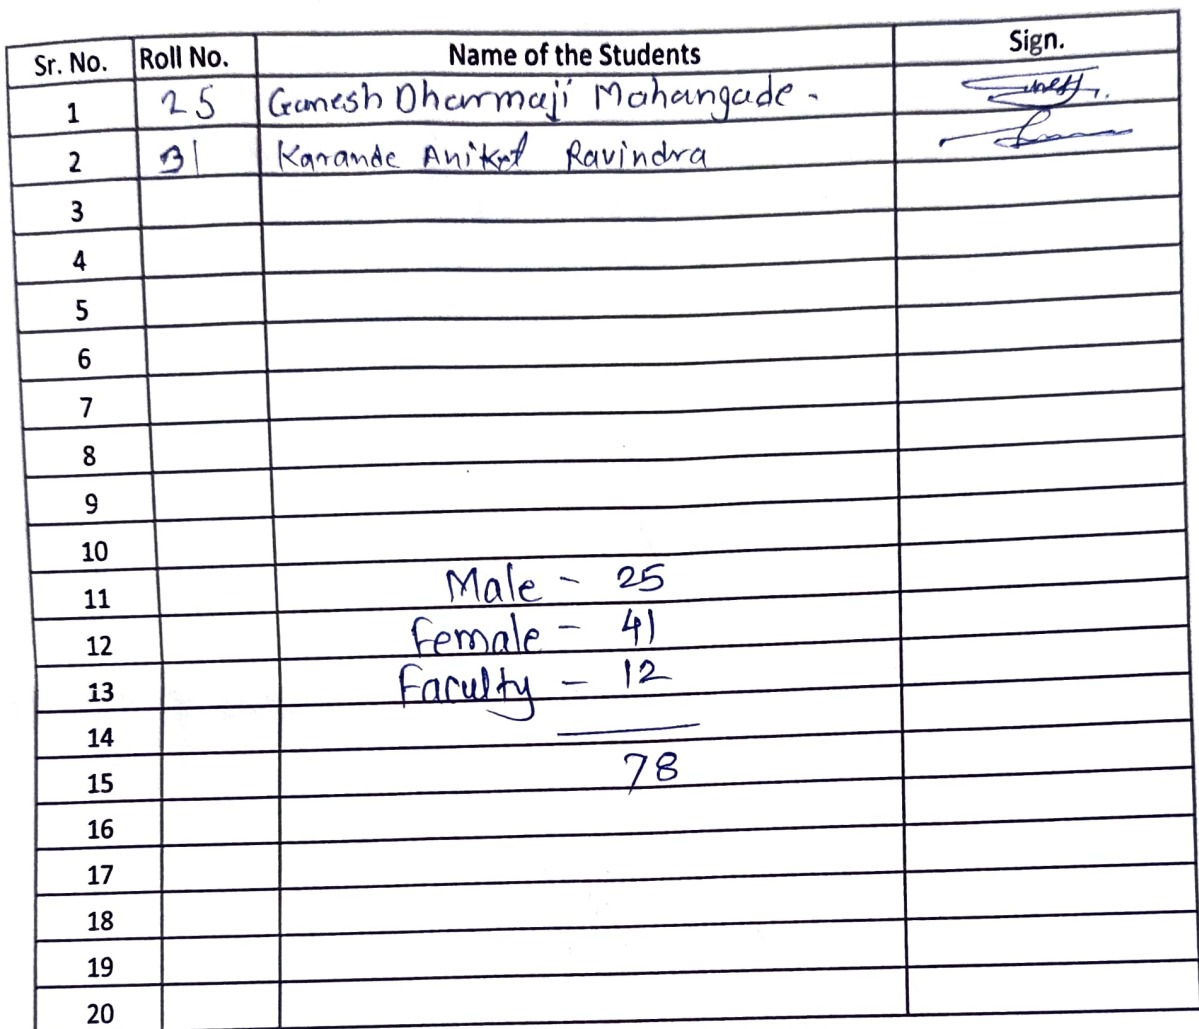 Sr. No. Roll No. Name of the Students Sign.
1 25 Ganesh Dharmaji Mahangade.
2 31 Karande Aniket Ravindra
3
4
5
6
7
8
9
10
11 Male - 25
12 Female - 41
13 Faculty - 12
14
15 78
16
17
18
19
20